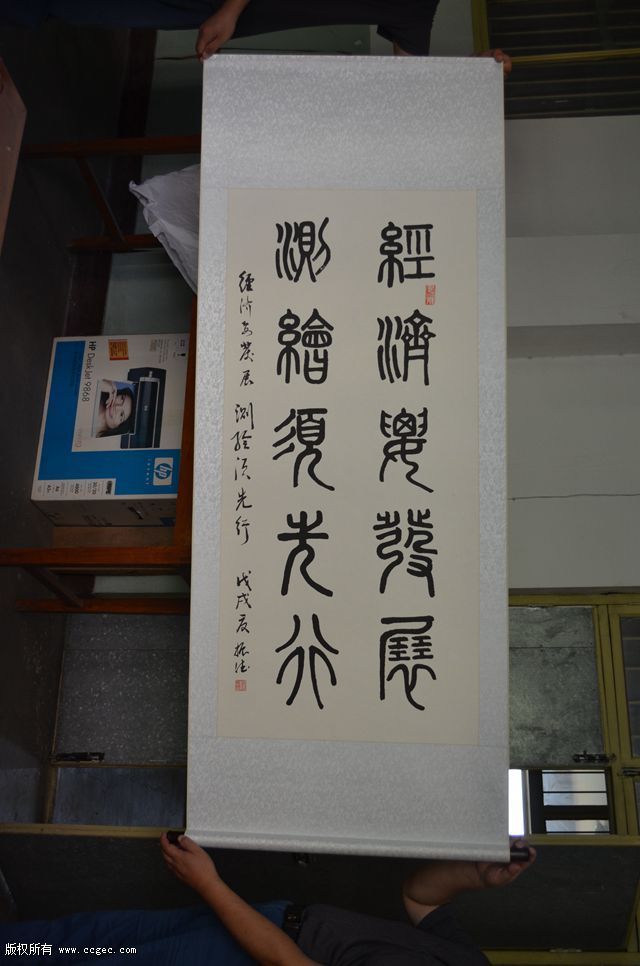 經濟要發展
測繪須先行
經济要發展 测绘须先行 戊戌夏振德
HP
DeskJet 9868
invent
版权所有 www.ccgec.com